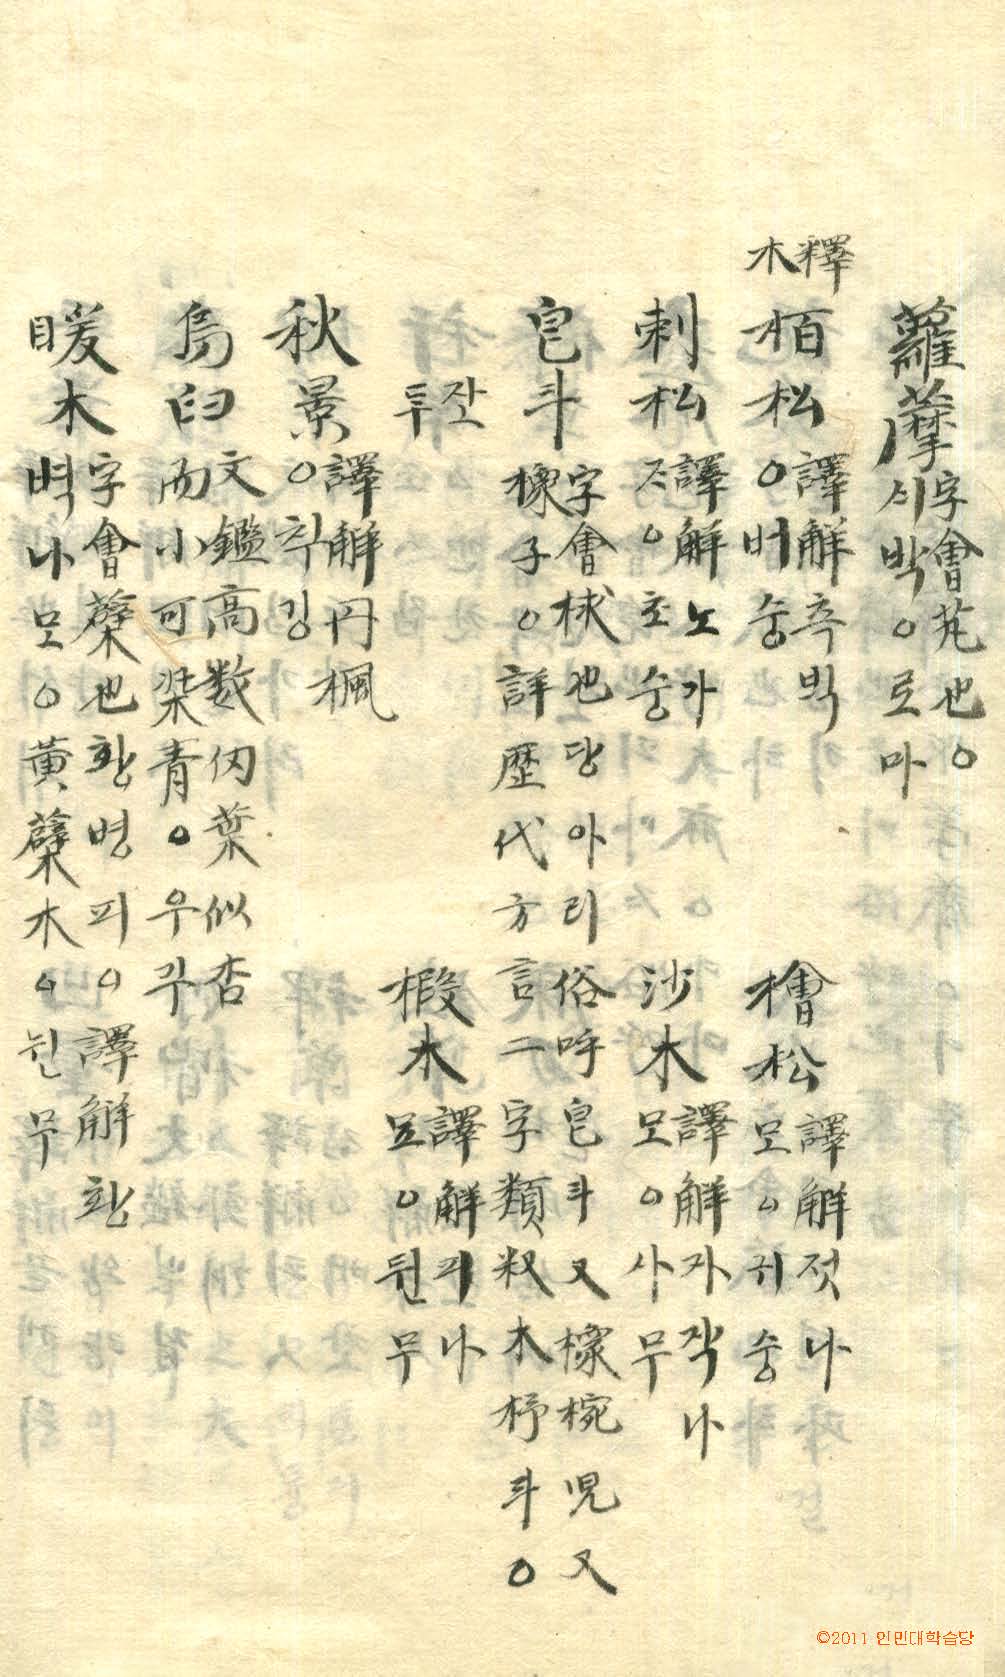 蘿藦 字會芄也○
싀박○로마
釋木
栢松 譯解측빅
○버숭
檜松 譯解젓나
모○귀숭
刺松 譯解노가
즈○호숭
沙木 譯解자작나
모○사무
皀斗 字會梂也당아리俗呼皀斗又橡椀兒又
橡子○詳歷代方言二字類釈木杼斗○
잔투
椵木 譯解피나
모○뒨무
秋景 譯解丹楓
○취깅
烏臼 文鑑高数仞葉似杏
而小可染青○우구
暖木 字會蘗也황벽피○譯解황
벽나모○黃蘗木○뉜무
©2011 인민대학습당